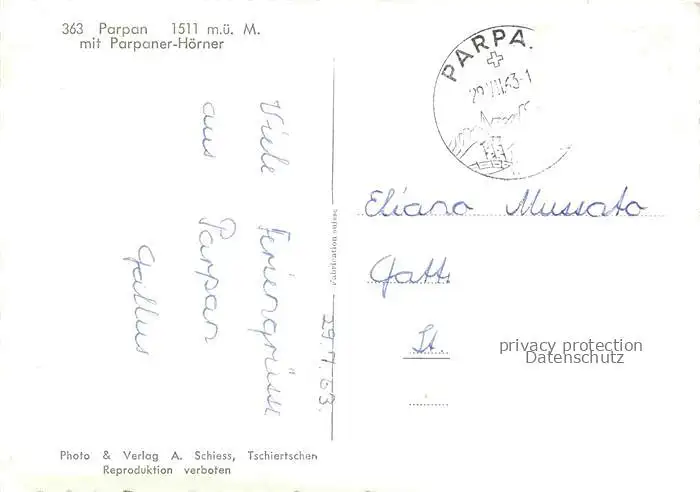 363 Parpan 1511 m.ü. M.
mit Parpaner-Hörner
PARPA
29.VII.63-1
Viele Feriengrüsse
aus Parpan
Gallus
29.7.63.
Fabrication suisse
Eliana Mussato
Gatt.
St.
privacy protection
Datenschutz
Photo & Verlag A. Schiess, Tschiertschen
Reproduktion verboten